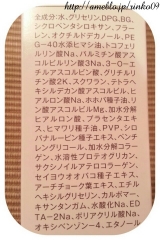 http://ameblo.jp/sinko09
全成分:水、グリセリン、DPG、BG、
シクロペンタシロキサン、フラー
レン、オクチルドデカノール、PE
G-40水添ヒマシ油、トコフェ
リルリン酸Na、パルミチン酸アス
コルビルリン酸3Na、3-O-エ
チルアスコルビン酸、グリチルリ
チン酸2K、スクワラン、テトラヘ
キシルデカン酸アスコルビル、ヒ
アルロン酸Na、ホホバ種子油、リ
ン酸アスコルビルMg、加水分解
ヒアルロン酸、プラセンタエキ
ス、ヒマワリ種子油、PVP、シロ
バナルーピン種子エキス、ベンチ
ルグリコール、加水分解コラー
ゲン、水溶性プロテオグリカン、
サクシノイルアテロコラーゲン、
セイヨウオオバコ種子エキス、
アーチチョーク葉エキス、エチル
ヘキシルグリセリン、カルボマー、
キサンタンガム、水酸化Na、ED
TA-2Na、ポリアクリル酸Na、
オキシベンゾン-4、エタノール